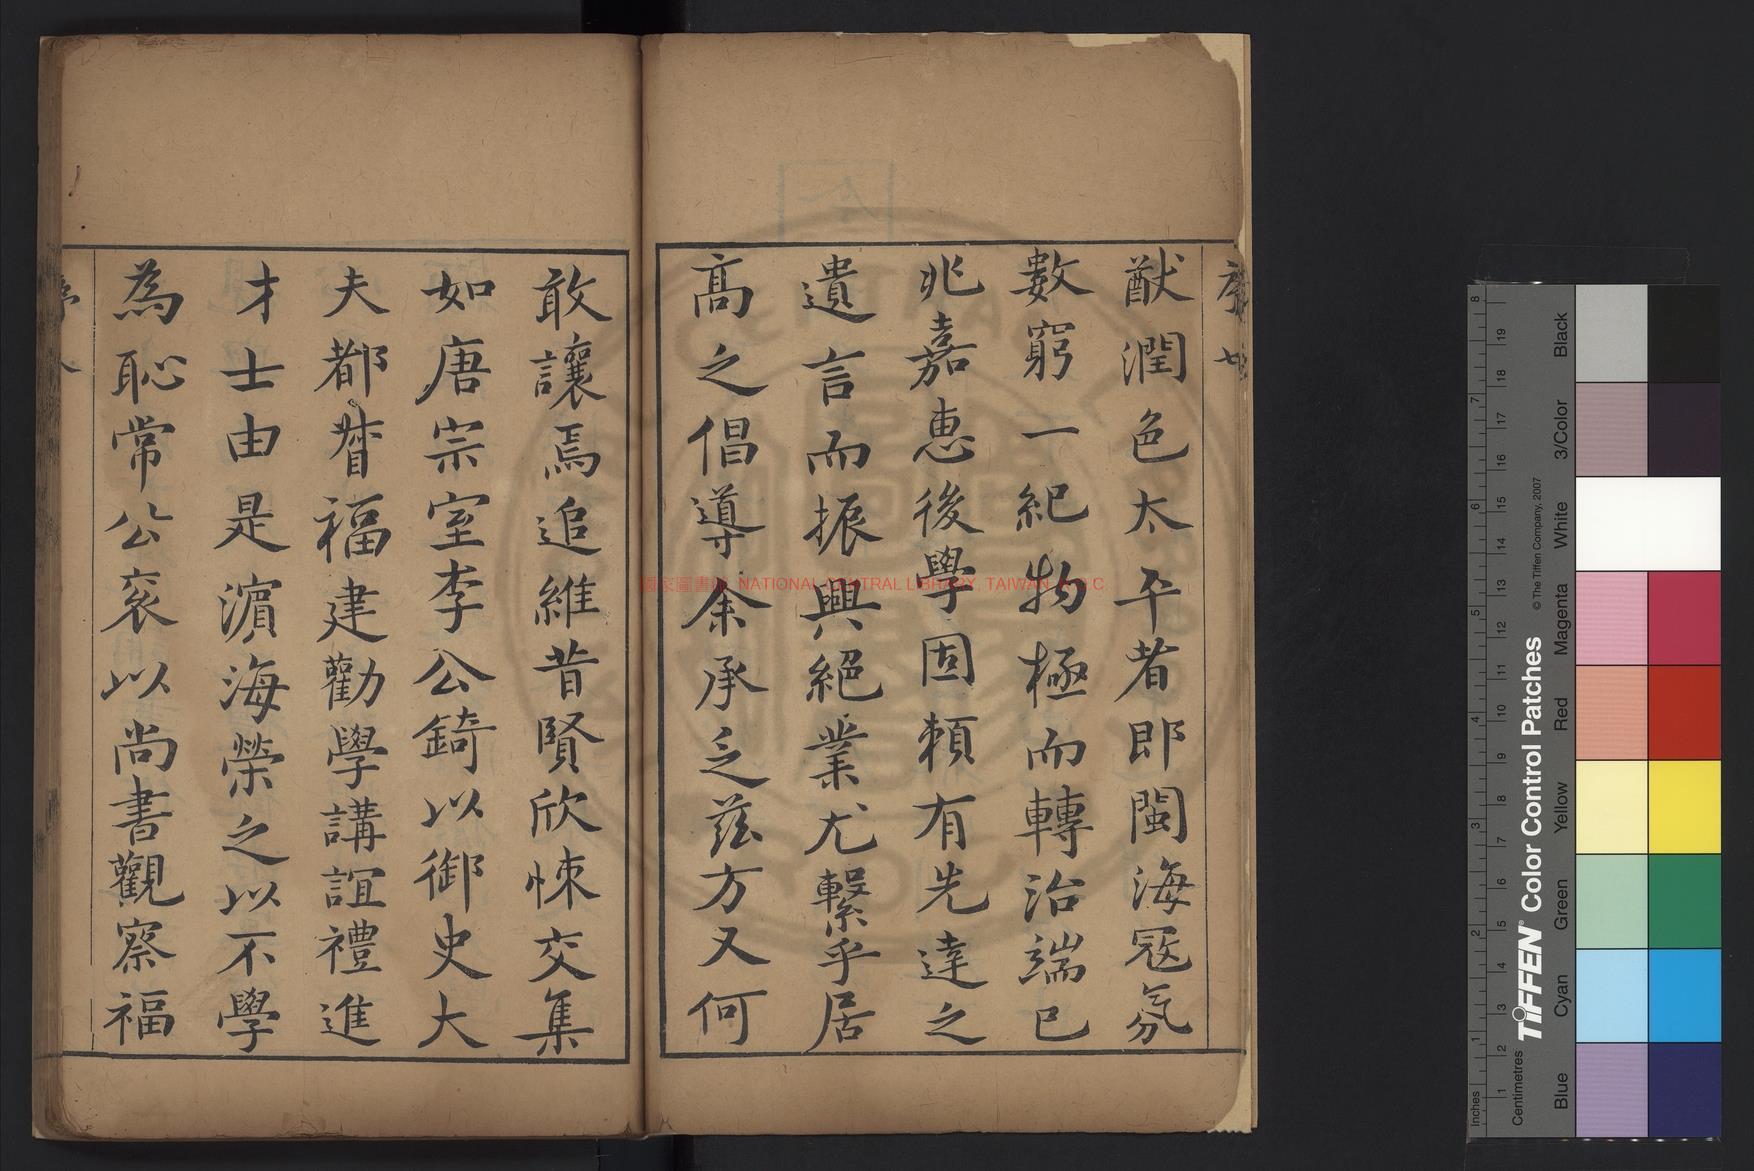 猷潤色太平者即閩海寇氛
數窮一紀物極而轉治端已
兆嘉惠後學固賴有先達之
遺言而振興絕業尤繫乎居
高之倡導余承乏茲方又何
敢讓焉追維昔賢欣悚交集
如唐宗室李公錡以御史大
夫都督福建勸學講誼禮進
才士由是濵海榮之以不學
為恥常公袞以尚書觀察福
國家圖書館 NATIONAL CENTRAL LIBRARY, TAIWAN, R.O.C
Inches
Centimetres
TIFFEN® Color Control Patches
© The Tiffen Company, 2007
Blue
Cyan
Green
Yellow
Red
Magenta
White
3/Color
Black